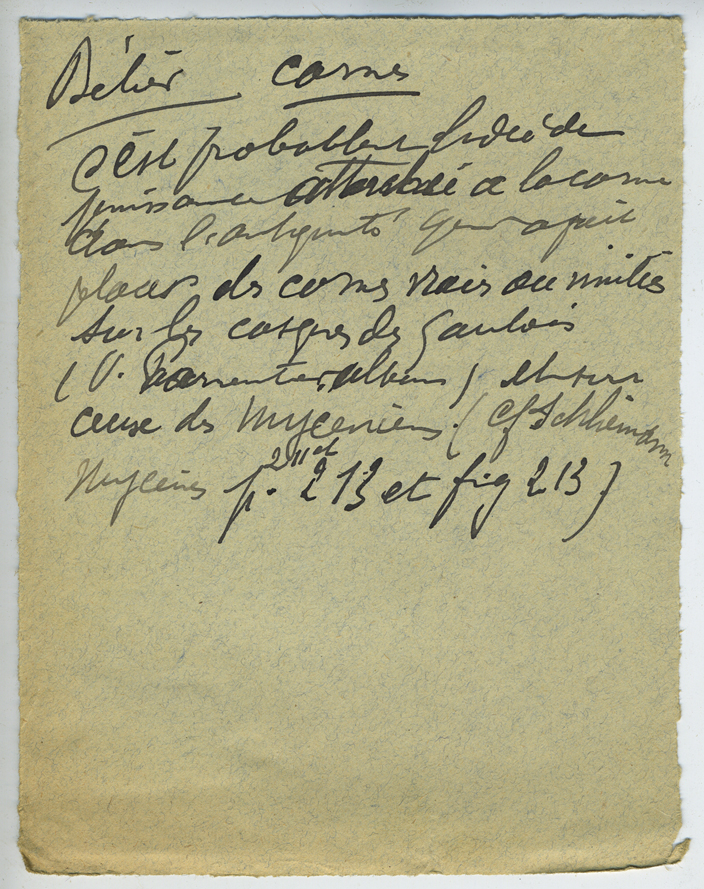 Bélier cornes
C'est probablent l'idée de
puissance attachée a la corne
dans l'antiquité qui a fait
placer des cornes vraies ou imitées
sur les casques des Gaulois
(V. album) et sur
ceux des Mycéniens. (Cf Schliemann
211 et
Mycènes p. 212 et fig 213)